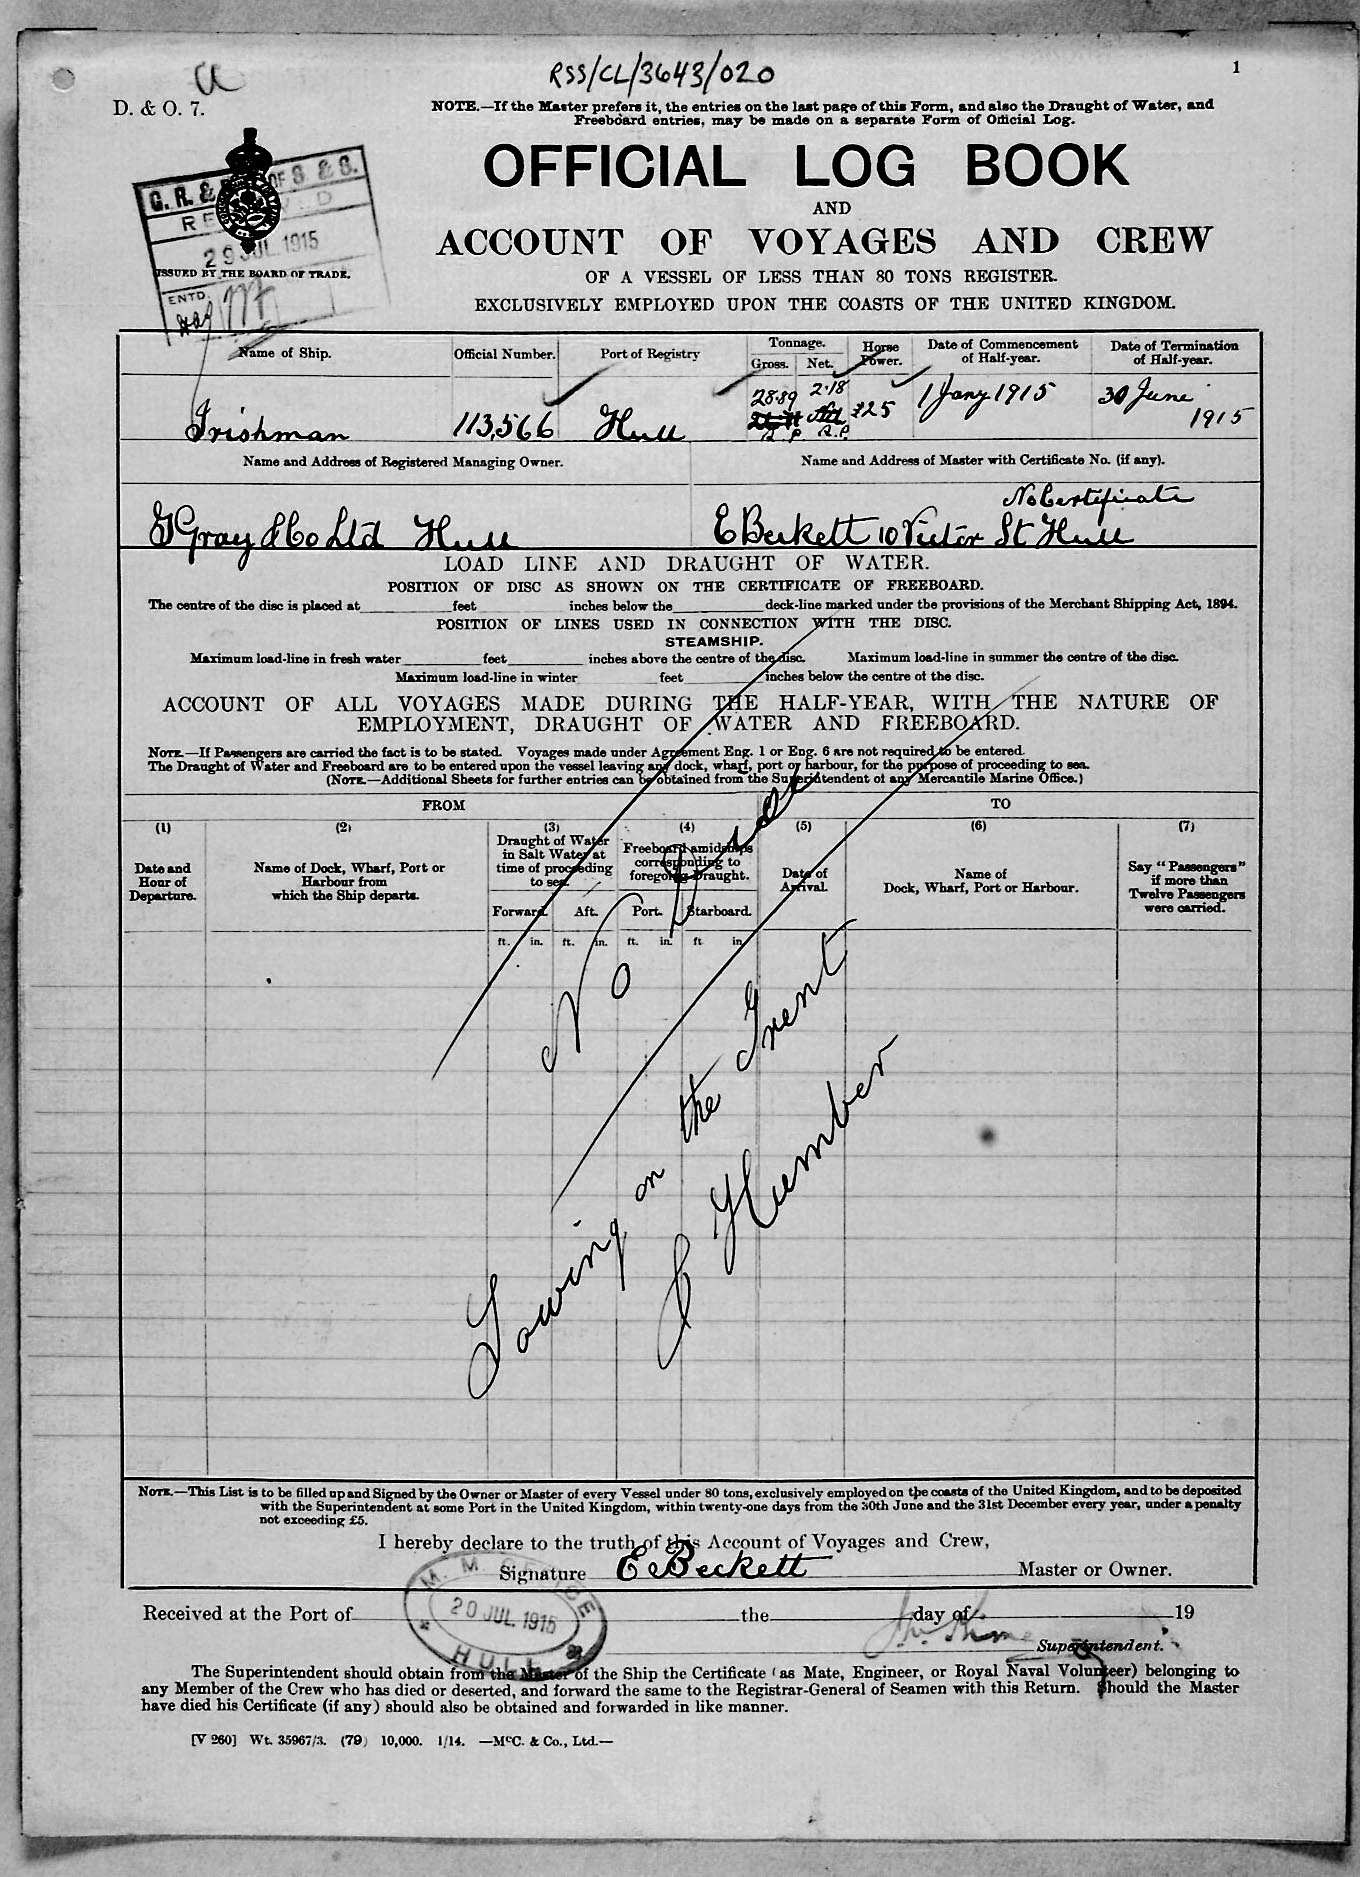 RSS/CL/3643/020
1
D. & O. 7.
NOTE.—If the Master prefers it, the entries on the last page of this Form, and also the Draught of Water, and
Freeboard entries, may be made on a separate Form of Official Log.
OFFICIAL LOG BOOK
AND
ACCOUNT OF VOYAGES AND CREW
OF A VESSEL OF LESS THAN 80 TONS REGISTER.
EXCLUSIVELY EMPLOYED UPON THE COASTS OF THE UNITED KINGDOM.
G. R. & OF S & S.
29 JUL 1915
ISSUED BY THE BOARD OF TRADE.
ENTD.
Name of Ship. Official Number. Port of Registry Tonnage. Horse Power. Date of Commencement of Half-year. Date of Termination of Half-year.
Gross. Net.
28.89 2.18
Irishman 113,566 Hull 25 1 Jany 1915 30 June 1915
Name and Address of Registered Managing Owner. Name and Address of Master with Certificate No. (if any).
No Certificate
Gray & Co Ltd Hull E Beckett 10 Victor St Hull
LOAD LINE AND DRAUGHT OF WATER.
POSITION OF DISC AS SHOWN ON THE CERTIFICATE OF FREEBOARD.
The centre of the disc is placed at feet inches below the deck-line marked under the provisions of the Merchant Shipping Act, 1894.
POSITION OF LINES USED IN CONNECTION WITH THE DISC.
STEAMSHIP.
Maximum load-line in fresh water feet inches above the centre of the disc. Maximum load-line in summer the centre of the disc.
Maximum load-line in winter feet inches below the centre of the disc.
ACCOUNT OF ALL VOYAGES MADE DURING THE HALF-YEAR, WITH THE NATURE OF
EMPLOYMENT, DRAUGHT OF WATER AND FREEBOARD.
NOTE.—If Passengers are carried the fact is to be stated. Voyages made under Agreement Eng. 1 or Eng. 6 are not required to be entered.
The Draught of Water and Freeboard are to be entered upon the vessel leaving any dock, wharf, port or harbour, for the purpose of proceeding to sea.
(NOTE.—Additional Sheets for further entries can be obtained from the Superintendent of any Mercantile Marine Office.)
FROM TO
(1) (2) (3) (4) (5) (6) (7)
Date and Hour of Departure.
Name of Dock, Wharf, Port or Harbour from which the Ship departs.
Draught of Water in Salt Water at time of proceeding to sea.
Freeboard amidships corresponding to foregoing Draught.
Date of Arrival.
Name of Dock, Wharf, Port or Harbour.
Say "Passengers" if more than Twelve Passengers were carried.
Forward. Aft. Port. Starboard.
ft. in. ft. in. ft. in. ft in.
No Disc
Towing on the Trent
& Humber
NOTE.—This List is to be filled up and Signed by the Owner or Master of every Vessel under 80 tons, exclusively employed on the coasts of the United Kingdom, and to be deposited
with the Superintendent at some Port in the United Kingdom, within twenty-one days from the 30th June and the 31st December every year, under a penalty
not exceeding £5.
I hereby declare to the truth of this Account of Voyages and Crew,
Signature E Beckett Master or Owner.
M. M. OFFICE
20 JUL. 1915
HULL
Received at the Port of the day of 19
Superintendent.
The Superintendent should obtain from the Master of the Ship the Certificate (as Mate, Engineer, or Royal Naval Volunteer) belonging to
any Member of the Crew who has died or deserted, and forward the same to the Registrar-General of Seamen with this Return. Should the Master
have died his Certificate (if any) should also be obtained and forwarded in like manner.
[V 260] Wt. 35967/3. (79) 10,000. 1/14. —McC. & Co., Ltd.—